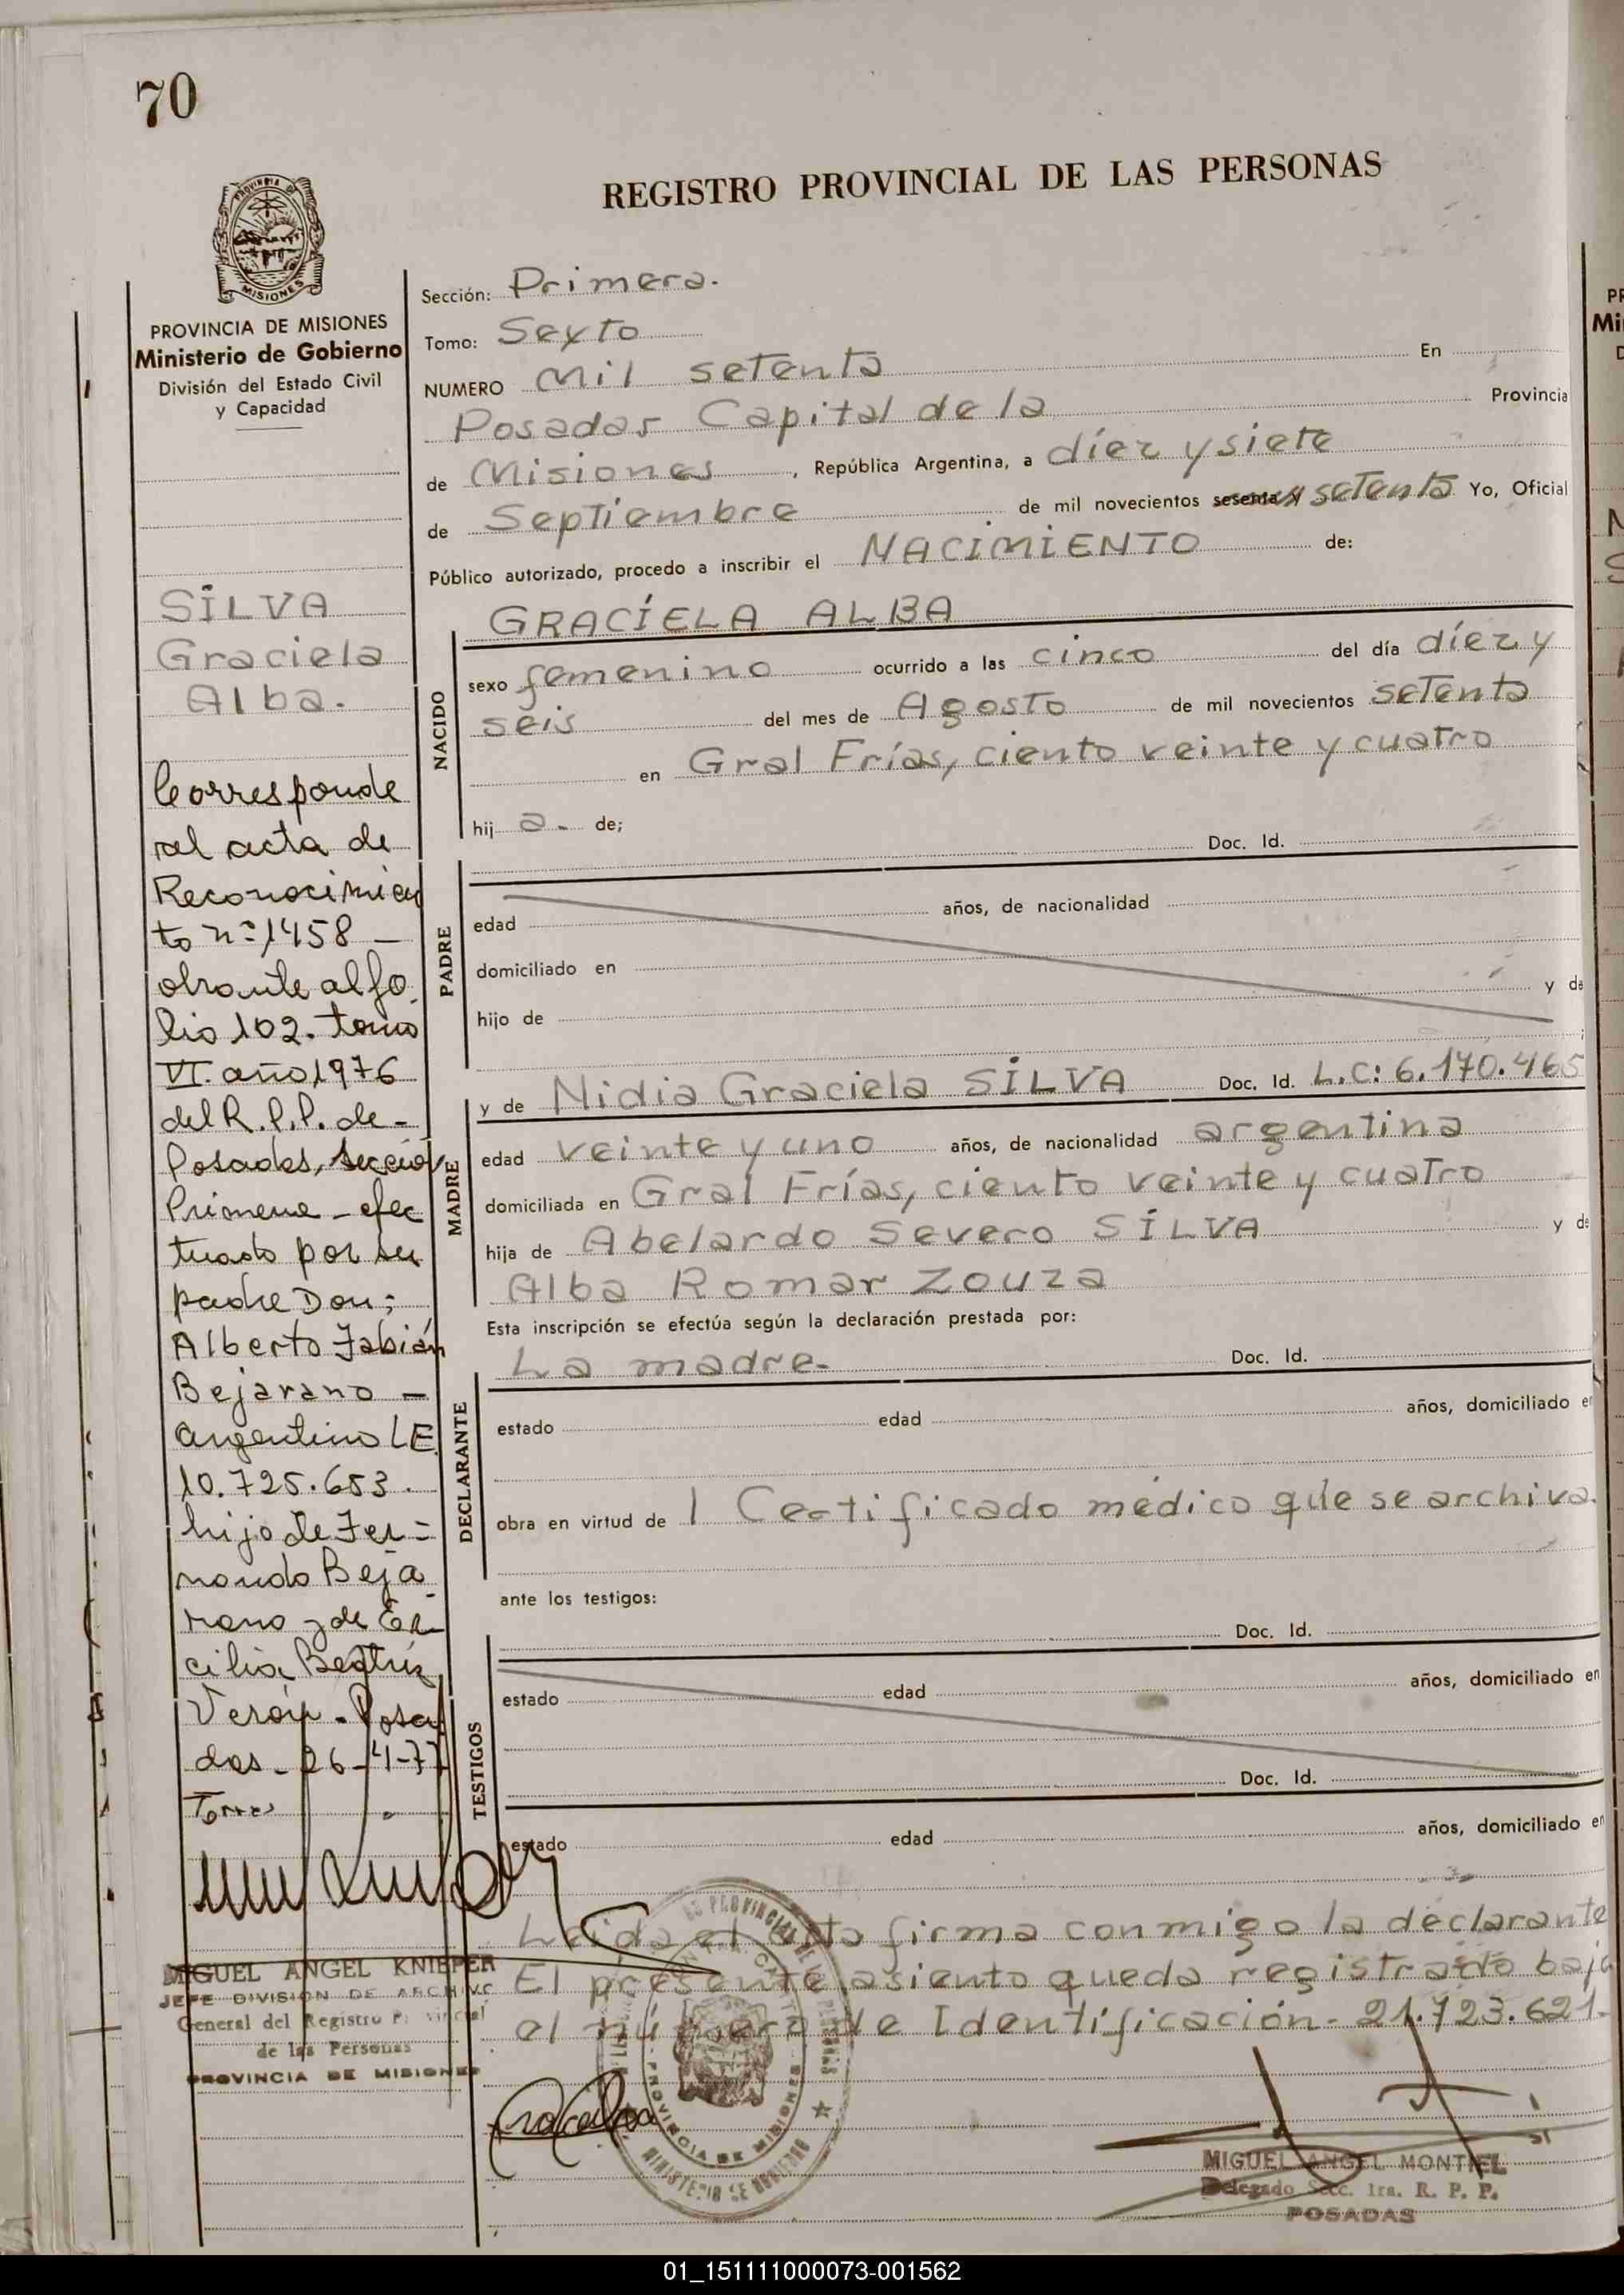 70
REGISTRO PROVINCIAL DE LAS PERSONAS
PROVINCIA DE MISIONES
Ministerio de Gobierno
División del Estado Civil
y Capacidad
SILVA
Graciela
Alba.
Corresponde
al acta de
Reconocimien
to nº 1458 -
obrante al fo
lio 102. tomo
VI. año 1976
del R.P.P. de -
Posadas, sección
Primera - efec
tuado por su
padre Don;
Alberto Fabián
Bejarano -
argentino LE
10.725.653.
hijo de Fer=
nando Beja
rano y de Er-
cilia Beatriz
Verón - Posa
das - 26-4-77
Torres
MIGUEL ANGEL KNIEPER
JEFE DIVISION DE ARCHIVO
General del Registro Provincial
de las Personas
PROVINCIA DE MISIONES
Sección: Primera.
Tomo: Sexto
NUMERO Mil setenta En
Posadas Capital de la Provincia
de Misiones, República Argentina, a díez y siete
de Septiembre de mil novecientos sesenta y setenta Yo, Oficial
Público autorizado, procedo a inscribir el NACIMIENTO de:
GRACÍELA ALBA
NACIDO
sexo femenino ocurrido a las cinco del día díez y
seis del mes de Agosto de mil novecientos setenta
en Gral Frías, ciento veinte y cuatro
hij a. de;
Doc. Id.
PADRE
edad años, de nacionalidad
domiciliado en
hijo de y de
y de Nidia Graciela SILVA Doc. Id. L.C: 6.170.465
MADRE
edad veinte y uno años, de nacionalidad argentina
domiciliada en Gral Frías, ciento veinte y cuatro
hija de Abelardo Severo SILVA y de
Alba Romar Zouza
Esta inscripción se efectúa según la declaración prestada por:
La madre. Doc. Id.
DECLARANTE
estado edad años, domiciliado en
obra en virtud de 1 Certificado médico que se archiva.
ante los testigos:
Doc. Id.
TESTIGOS
estado edad años, domiciliado en
Doc. Id.
estado edad años, domiciliado en
Leida el acta firma conmigo la declarante
El presente asiento queda registrado bajo
el número de Identificación - 21.723.621.
PROVINCIA DE MISIONES
MINISTERIO DE GOBIERNO
MIGUEL ANGEL MONTIEL
Delegado Secc. 1ra. R. P. P.
POSADAS
PR
Mi
01_151111000073-001562